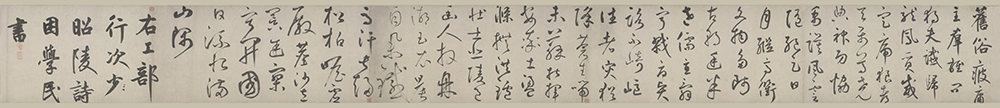 舊俗疲庸
主群雄問
獨夫讖歸
龍鳳質威
定虎狼都
天屬尊堯
典神功協
禹謨風雲
隨絕足日
月繼高衢
文物多師
古朝廷半
老儒直詞
寧戮辱賢
路不崎嶇
往者災猶
降蒼生喘
未蘇指麾
安率土盪
滌撫洪爐
壯士悲陵邑
幽人拜鼎
湖玉衣晨
自舉鐵馬
汗常趨
松柏瞻虛
殿塵沙立
暝途寂
寥開國
日流恨滿
山隅
右工部
行次
昭陵詩
困學民
書